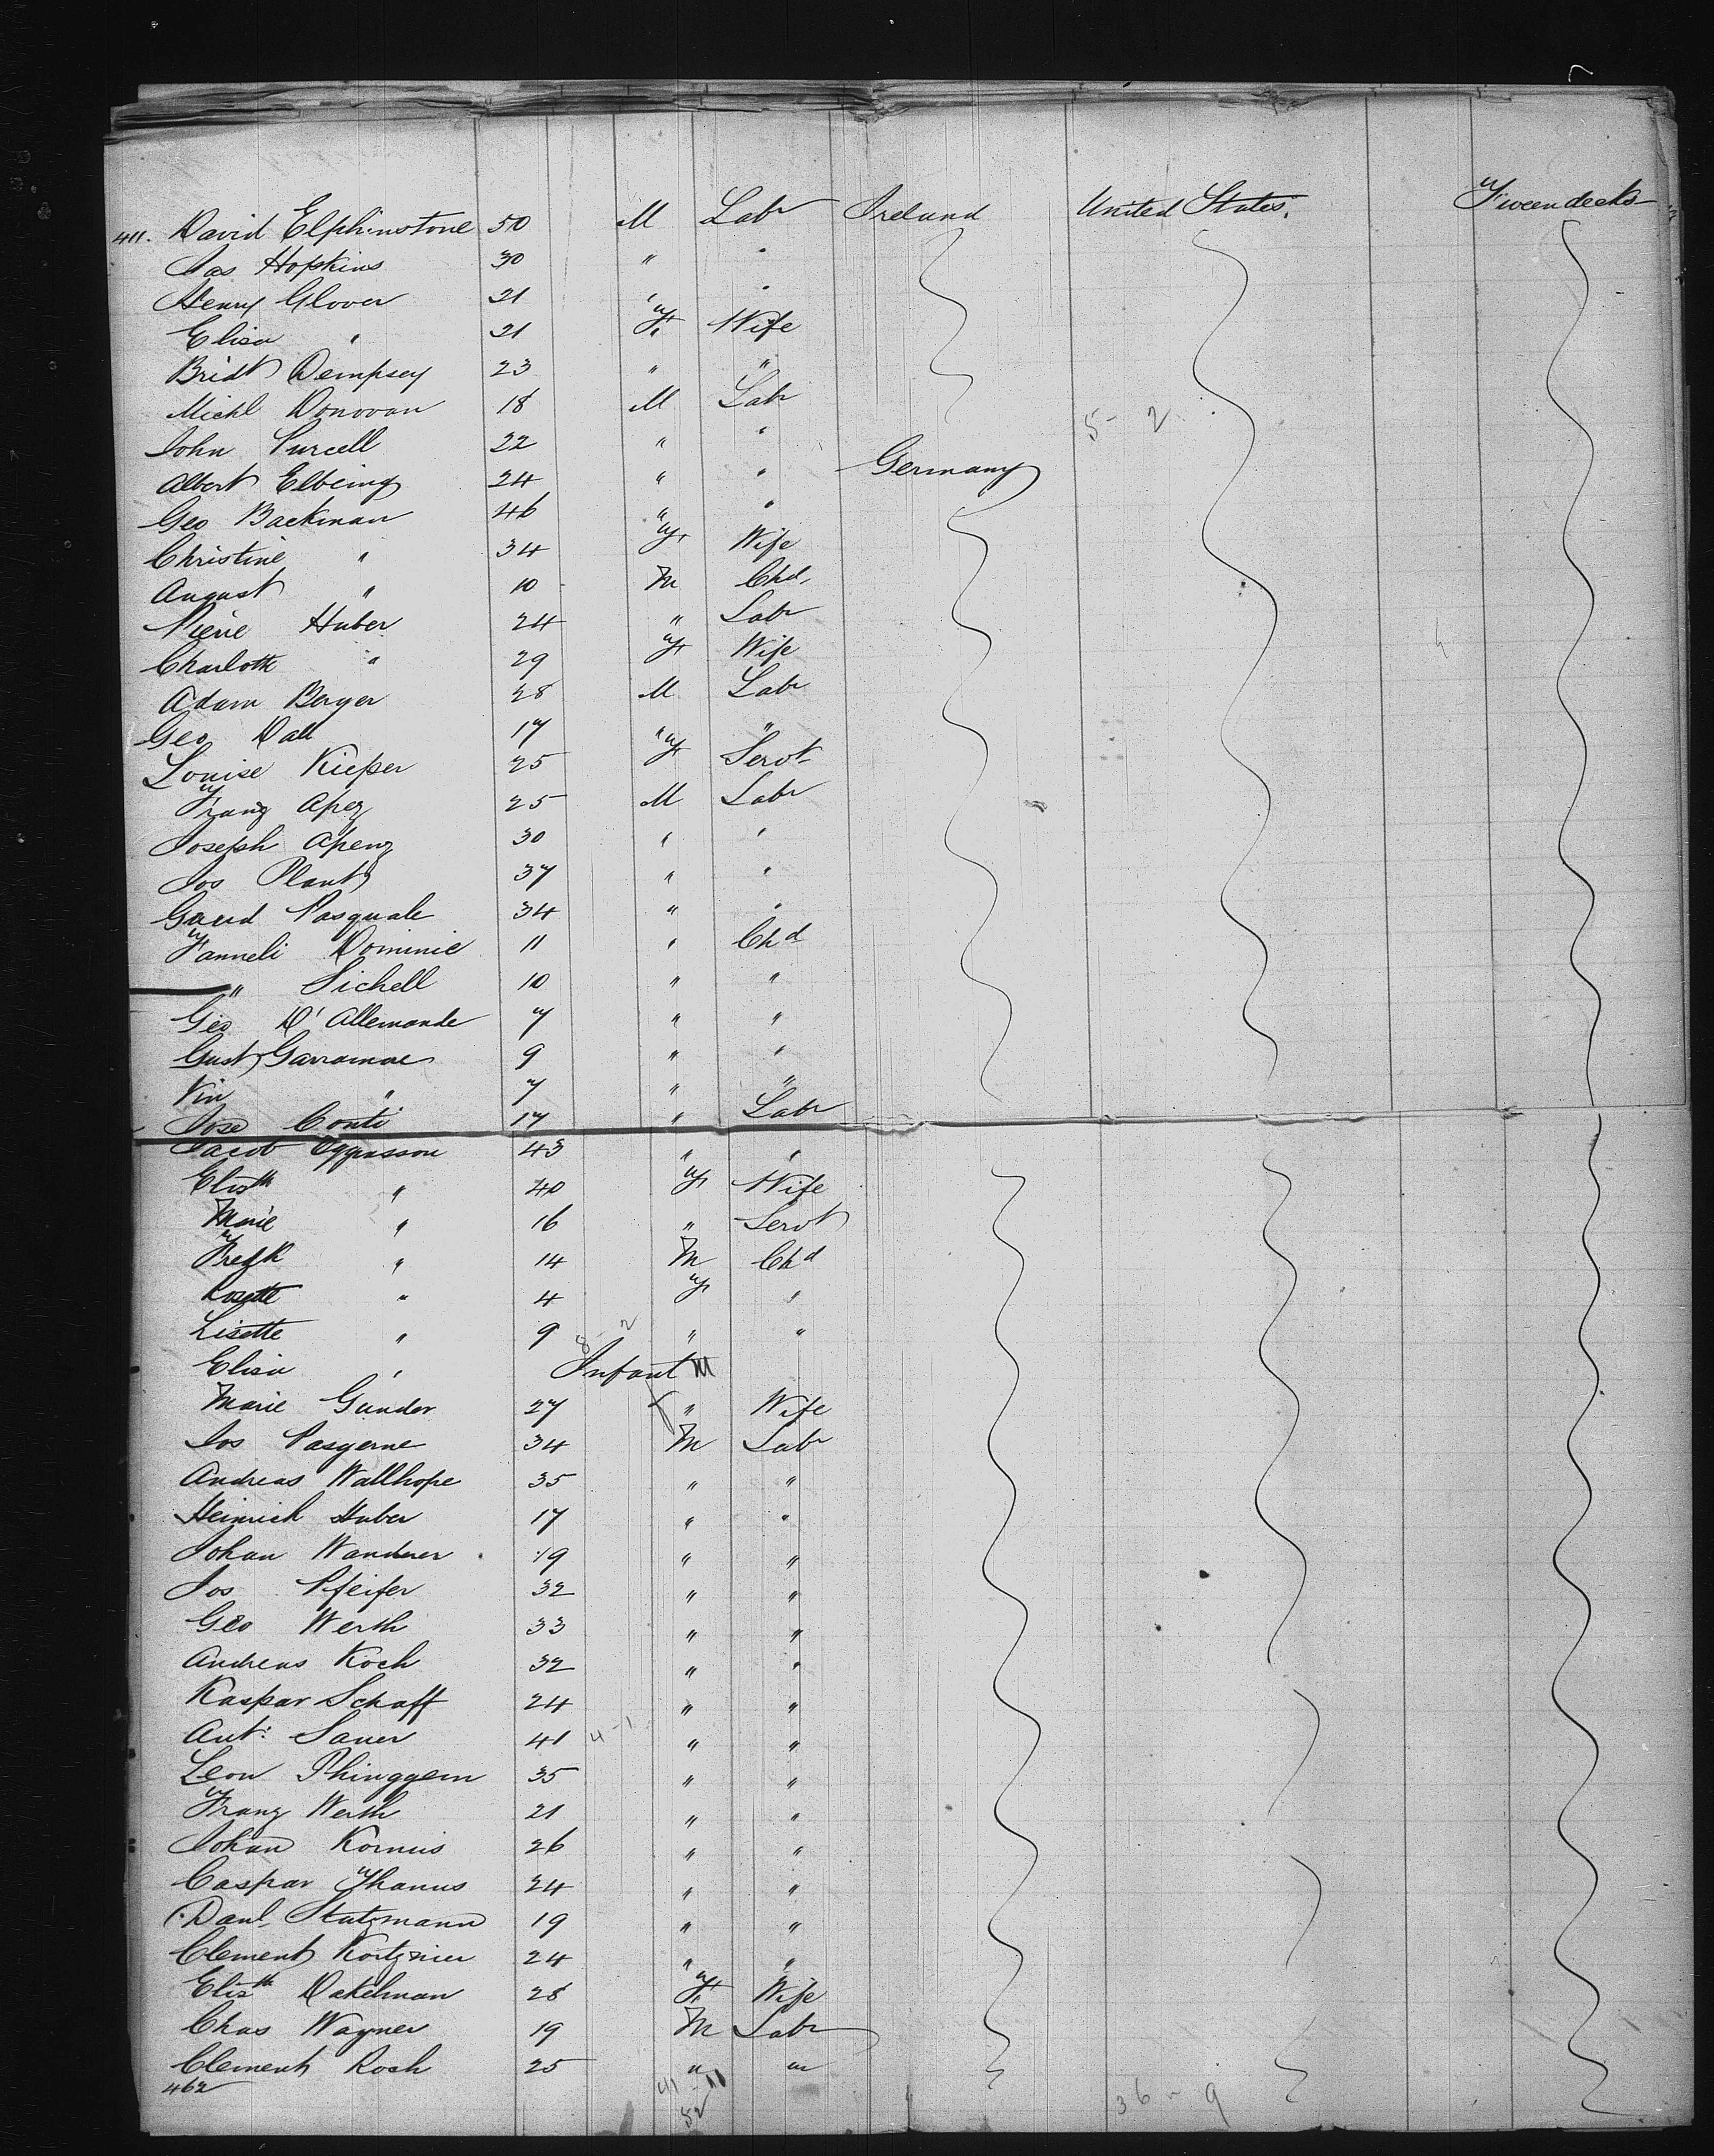 411. David Elphinstone 50 M Labr Ireland United States. Tweendecks
Jas Hopkins 30 " "
Henry Glover 21 " "
Elisa " 21 F. Wife
Bridt Dempsey 23 " "
Michl Donovan 18 M Labr
5- 2
John Purcell 22 " "
Albert Elbeing 24 " " Germany
Geo Backman 46 " "
Christine " 34 F Wife
August " 10 M Chd.
Pierre Huber 24 " Labr
Charlotte " 29 F Wife
Adam Berger 28 M Labr
Geo Dall 17 " "
Louise Kieper 25 F Servt
Franz Apez 25 M Labr
Joseph Apenz 30 " "
Jos Plant 37 " "
Gaud Pasquale 34 " "
Fanneli Dominic 11 " Chd
" Sichell 10 " "
Geo D'Allemande 7 " "
Gust Garramae 9 " "
Vin " 7 " "
Jose Conti 17 " Labr
Jacob 43 " "
Elizth " 40 F Wife
Marie " 16 " Servt
Fredk " 14 M Chd
Rosette " 4 F "
Lisette " 9 " "
Elisa " Infant M
Marie Gunder 27 " Wife
Jos Pasgerne 34 M Labr
Andreas Wallhope 35 " "
Heinrich Huber 17 " "
Johan Wanderer 19 " "
Jos Pfeifer 32 " "
Geo Werth 33 " "
Andreas Koch 32 " "
Kaspar Schaff 24 " "
Ant: Sauer 41 4-1 " "
Leon 35 " "
Franz Werth 21 " "
Johan Kornis 26 " "
Caspar Thanus 24 " "
Danl. Statzmann 19 " "
Clement 24 " "
Elizth Dakelman 28 F. Wife
Chas Wagner 19 M Labr
Clement Rosh 25 " "
462 41 11 36 - 9
52